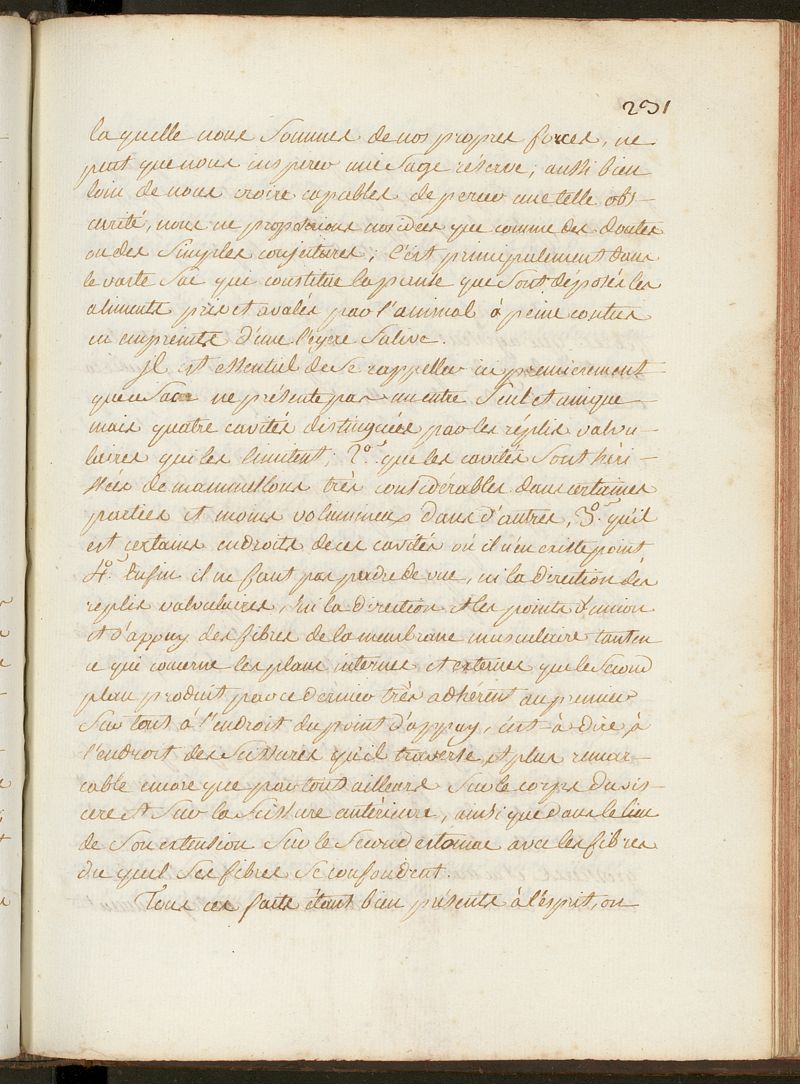 231
la quelle nous Sommes de nos propres forces, ne
peut que nous inspirer une Sage réserve; aussi bien
loin de nous croire capables de percer une telle obs-
curité, nous ne proposerions nos idées que comme des doutes
ou des Simples conjectures; C'est principalement dans
le vaste Sac qui constitue la panse que Sont déposés les
aliments pris et avalés par l'animal à peine contus
et empreints d'une légere Salive.
Il est essentiel de Se rappeller ici premierement
que ce Sac ne présente pas un entre Seul et unique
mais quatre cavités distinguées par les réplis valvu-
laires qui les limitent; 2.º que les cavités Sont héri-
ssées de mammellons très considérables dans certaines
parties et moins volumineux dans d'autres, 3.º qu'il
est certains endroits de ces cavités où il n'en existe point
4.º Enfin il ne faut pas perdre de vue, ni la direction des
replis valvulaires, ni la direction et les points d'union
et d'appuy des fibres de la membrane musculaire tant en
ce qui concerne les plans internes et externes que le Second
plan produit par ce dernier très adhérent au premier
Sur tout à l'endroit du point d'appuy, c'est-à-dire à
l'endroit des Scissures qu'il traverse et plus remar-
cable encore que par tout ailleurs Sur le corps du vis-
cere et Sur la Scissure antérieure, ainsi que dans le lieu
de Son extension Sur le Second estomac avec les fibres
du quel Ses fibres Se confondent.
Tous ces faits étant bien présents à l'ésprit, on